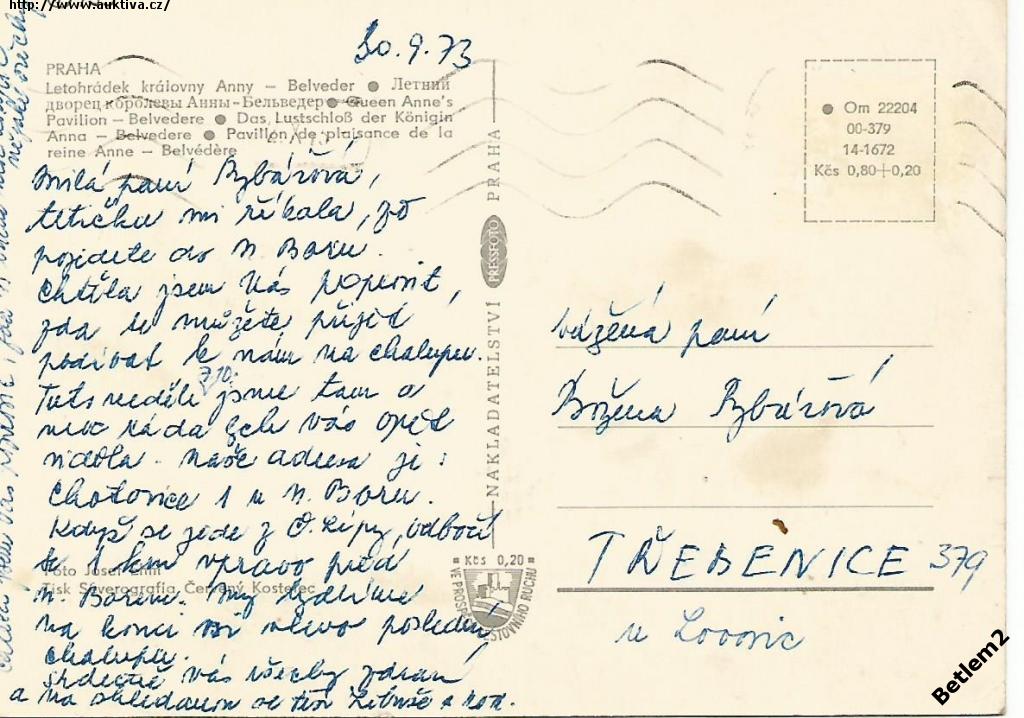 http://www.auktiva.cz/
30.9.73
PRAHA
Letohrádek královny Anny – Belveder ● Летний
дворец королевы Анны-Бельведер ● Queen Anne's
Pavilion – Belvedere ● Das Lustschloß der Königin
Anna – Belvedere ● Pavillon de plaisance de la
reine Anne – Belvédère
Milá paní Rybářová,
tetička mi říkala, že
pojedete do N. Boru.
Chtěla jsem Vás poprosit,
zda se můžete přijet
podívat k nám na chalupu.
7.10.
Tuto neděli jsme tam a
ráda bych vás opět
viděla. Naše adresa je:
Chotovice 1 u N. Boru.
Když se jede z Č. Lípy, odbočí
se 1 km vpravo před
N. Borem. My bydlíme
na konci vsi vlevo poslední
chalupu.
Srdečně vás všechny zdraví
a na shledanou se těší Libuše a rod.
Foto Josef Ehm
Tisk Severografia Červený Kostelec
NAKLADATELSTVÍ PRESSFOTO PRAHA
Kčs 0,20
VE PROSPĚCH CESTOVNÍHO RUCHU
● Om 22204
00-379
14-1672
Kčs 0,80+0,20
Vážená paní
Božena Rybářová
TŘEBENICE 379
u Lovosic
Betlem2